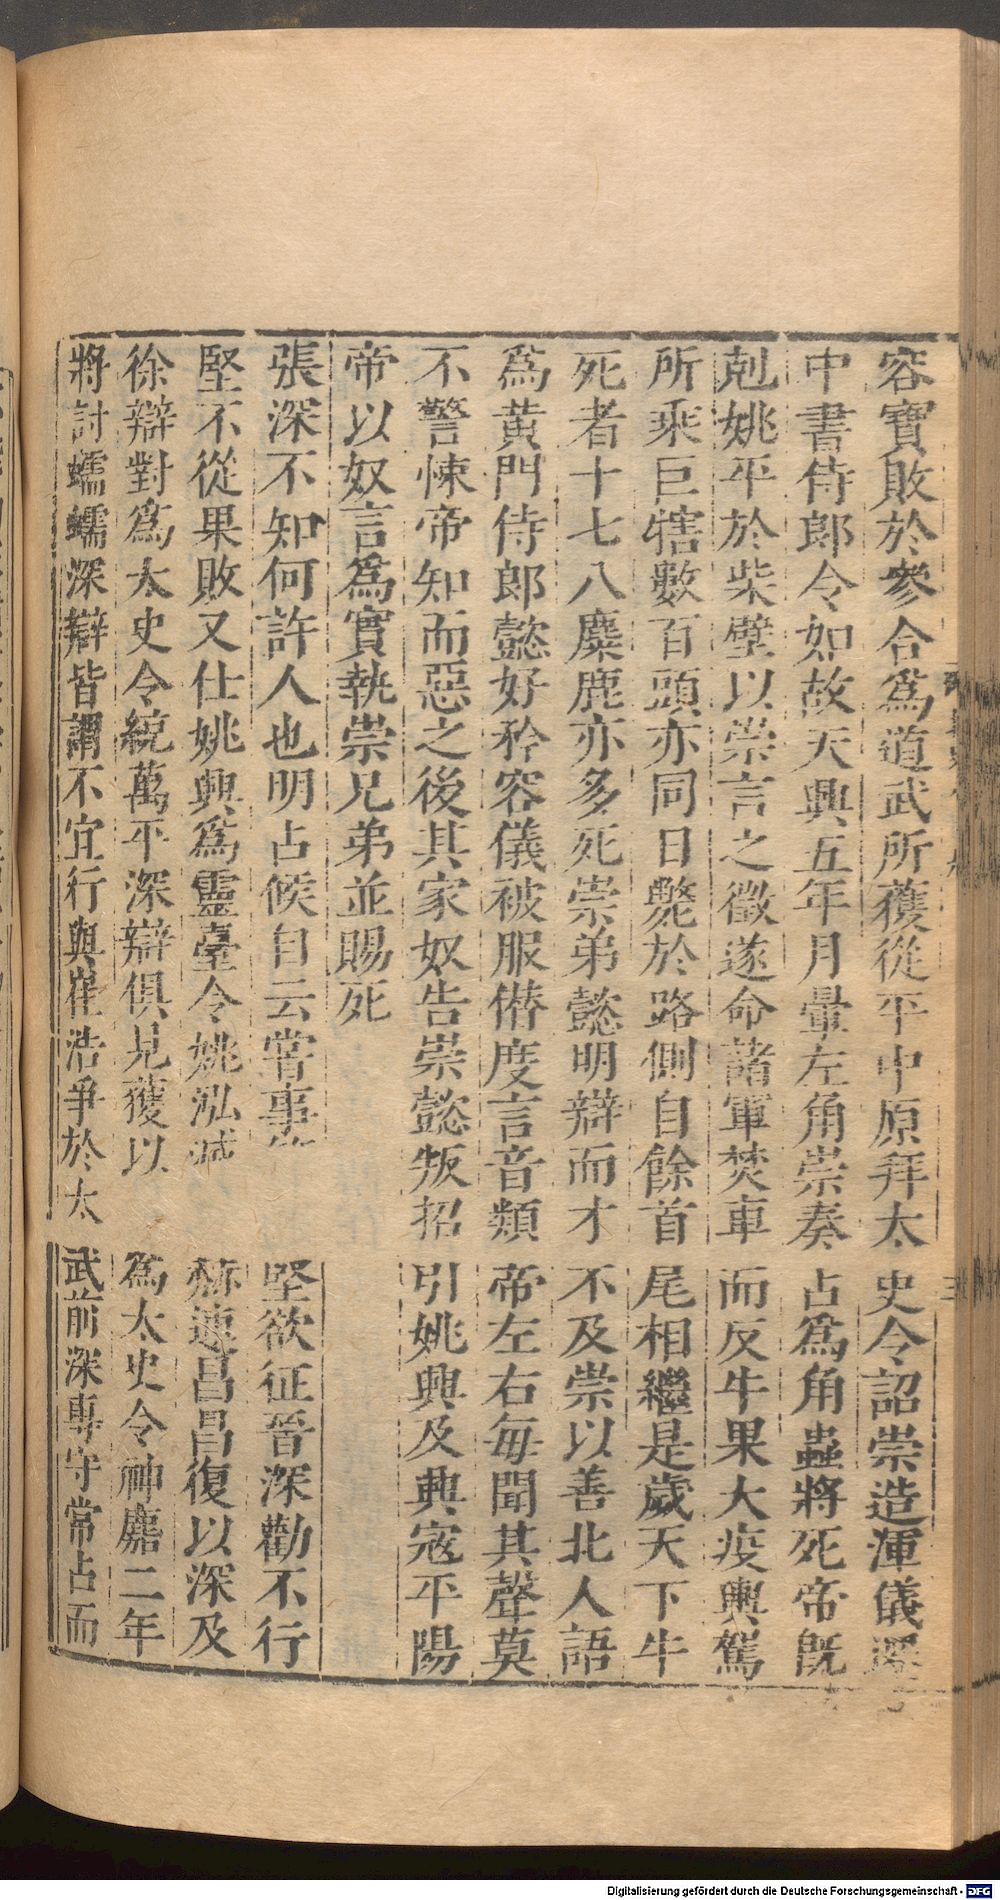 容寶敗於參合爲道武所獲從平中原拜太史令詔崇造渾儀遷
中書侍郎令如故天興五年月暈左角崇奏占爲角蟲將死帝旣
剋姚平於柴壁以崇言之徵遂命諸軍焚車而反牛果大疫輿駕
所乘巨犗數百頭亦同日斃於路側自餘首尾相繼是歲天下牛
死者十七八麋鹿亦多死崇弟懿明辯而才不及崇以善北人語
爲黃門侍郎懿好矜容儀被服僭度言音類帝左右每聞其聲莫
不警悚帝知而惡之後其家奴告崇懿叛招引姚興及興寇平陽
帝以奴言爲實執崇兄弟並賜死
張深不知何許人也明占候自云嘗事 堅欲征晉深勸不行
堅不從果敗又仕姚興爲靈臺令姚泓滅 赫連昌昌復以深及
徐辯對爲太史令統萬平深辯俱見獲以爲太史令神䴥二年
將討蠕蠕深辯皆謂不宜行與崔浩爭於太武前深專守常占而
三
Digitalisierung gefördert durch die Deutsche Forschungsgemeinschaft - DFG